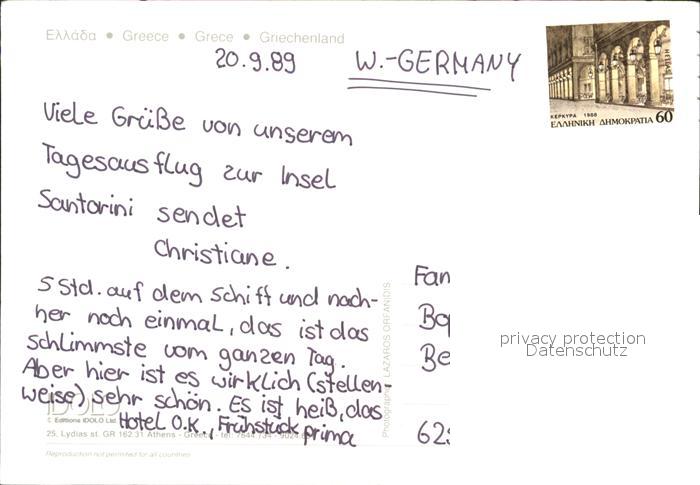 Ελλάδα • Greece • Grece • Griechenland
20.9.89 W.-GERMANY
ΚΕΡΚΥΡΑ 1988
ΕΛΛΗΝΙΚΗ ΔΗΜΟΚΡΑΤΙΑ 60
Viele Grüße von unserem
Tagesausflug zur Insel
Santorini sendet
Christiane.
5 Std. auf dem Schiff und nach-
her noch einmal, das ist das
schlimmste vom ganzen Tag.
Aber hier ist es wirklich (stellen-
weise) sehr schön. Es ist heiß, das
Hotel O.K., Frühstück prima
Fam
Be
62
privacy protection
Datenschutz
IDOLO
© Editions IDOLO Ltd
25, Lydias st. GR 162.31 Athens - Greece - tel: 7644.734 - 9024.
Reproduction not permited for all countries
Photography: LAZAROS ORFANIDIS